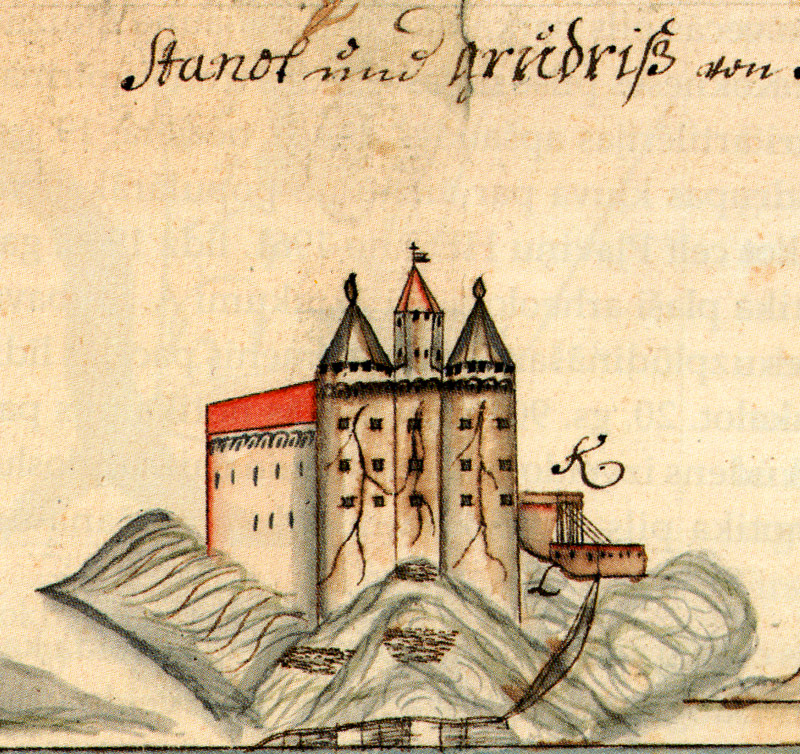 Standt und grůdriß von
K
L